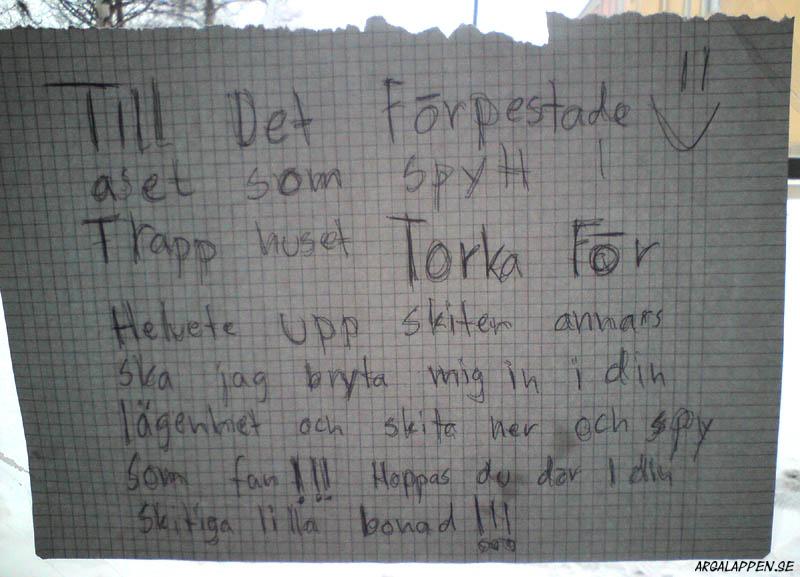 Till Det Förpestade
aset som spytt I
Trapp huset Torka För
Helvete upp skiten annars
ska jag bryta mig in i din
lägenhet och skita ner och spy
som fan!!! Hoppas du dör I din
skitiga lilla bonad!!!
ARGALAPPEN.SE